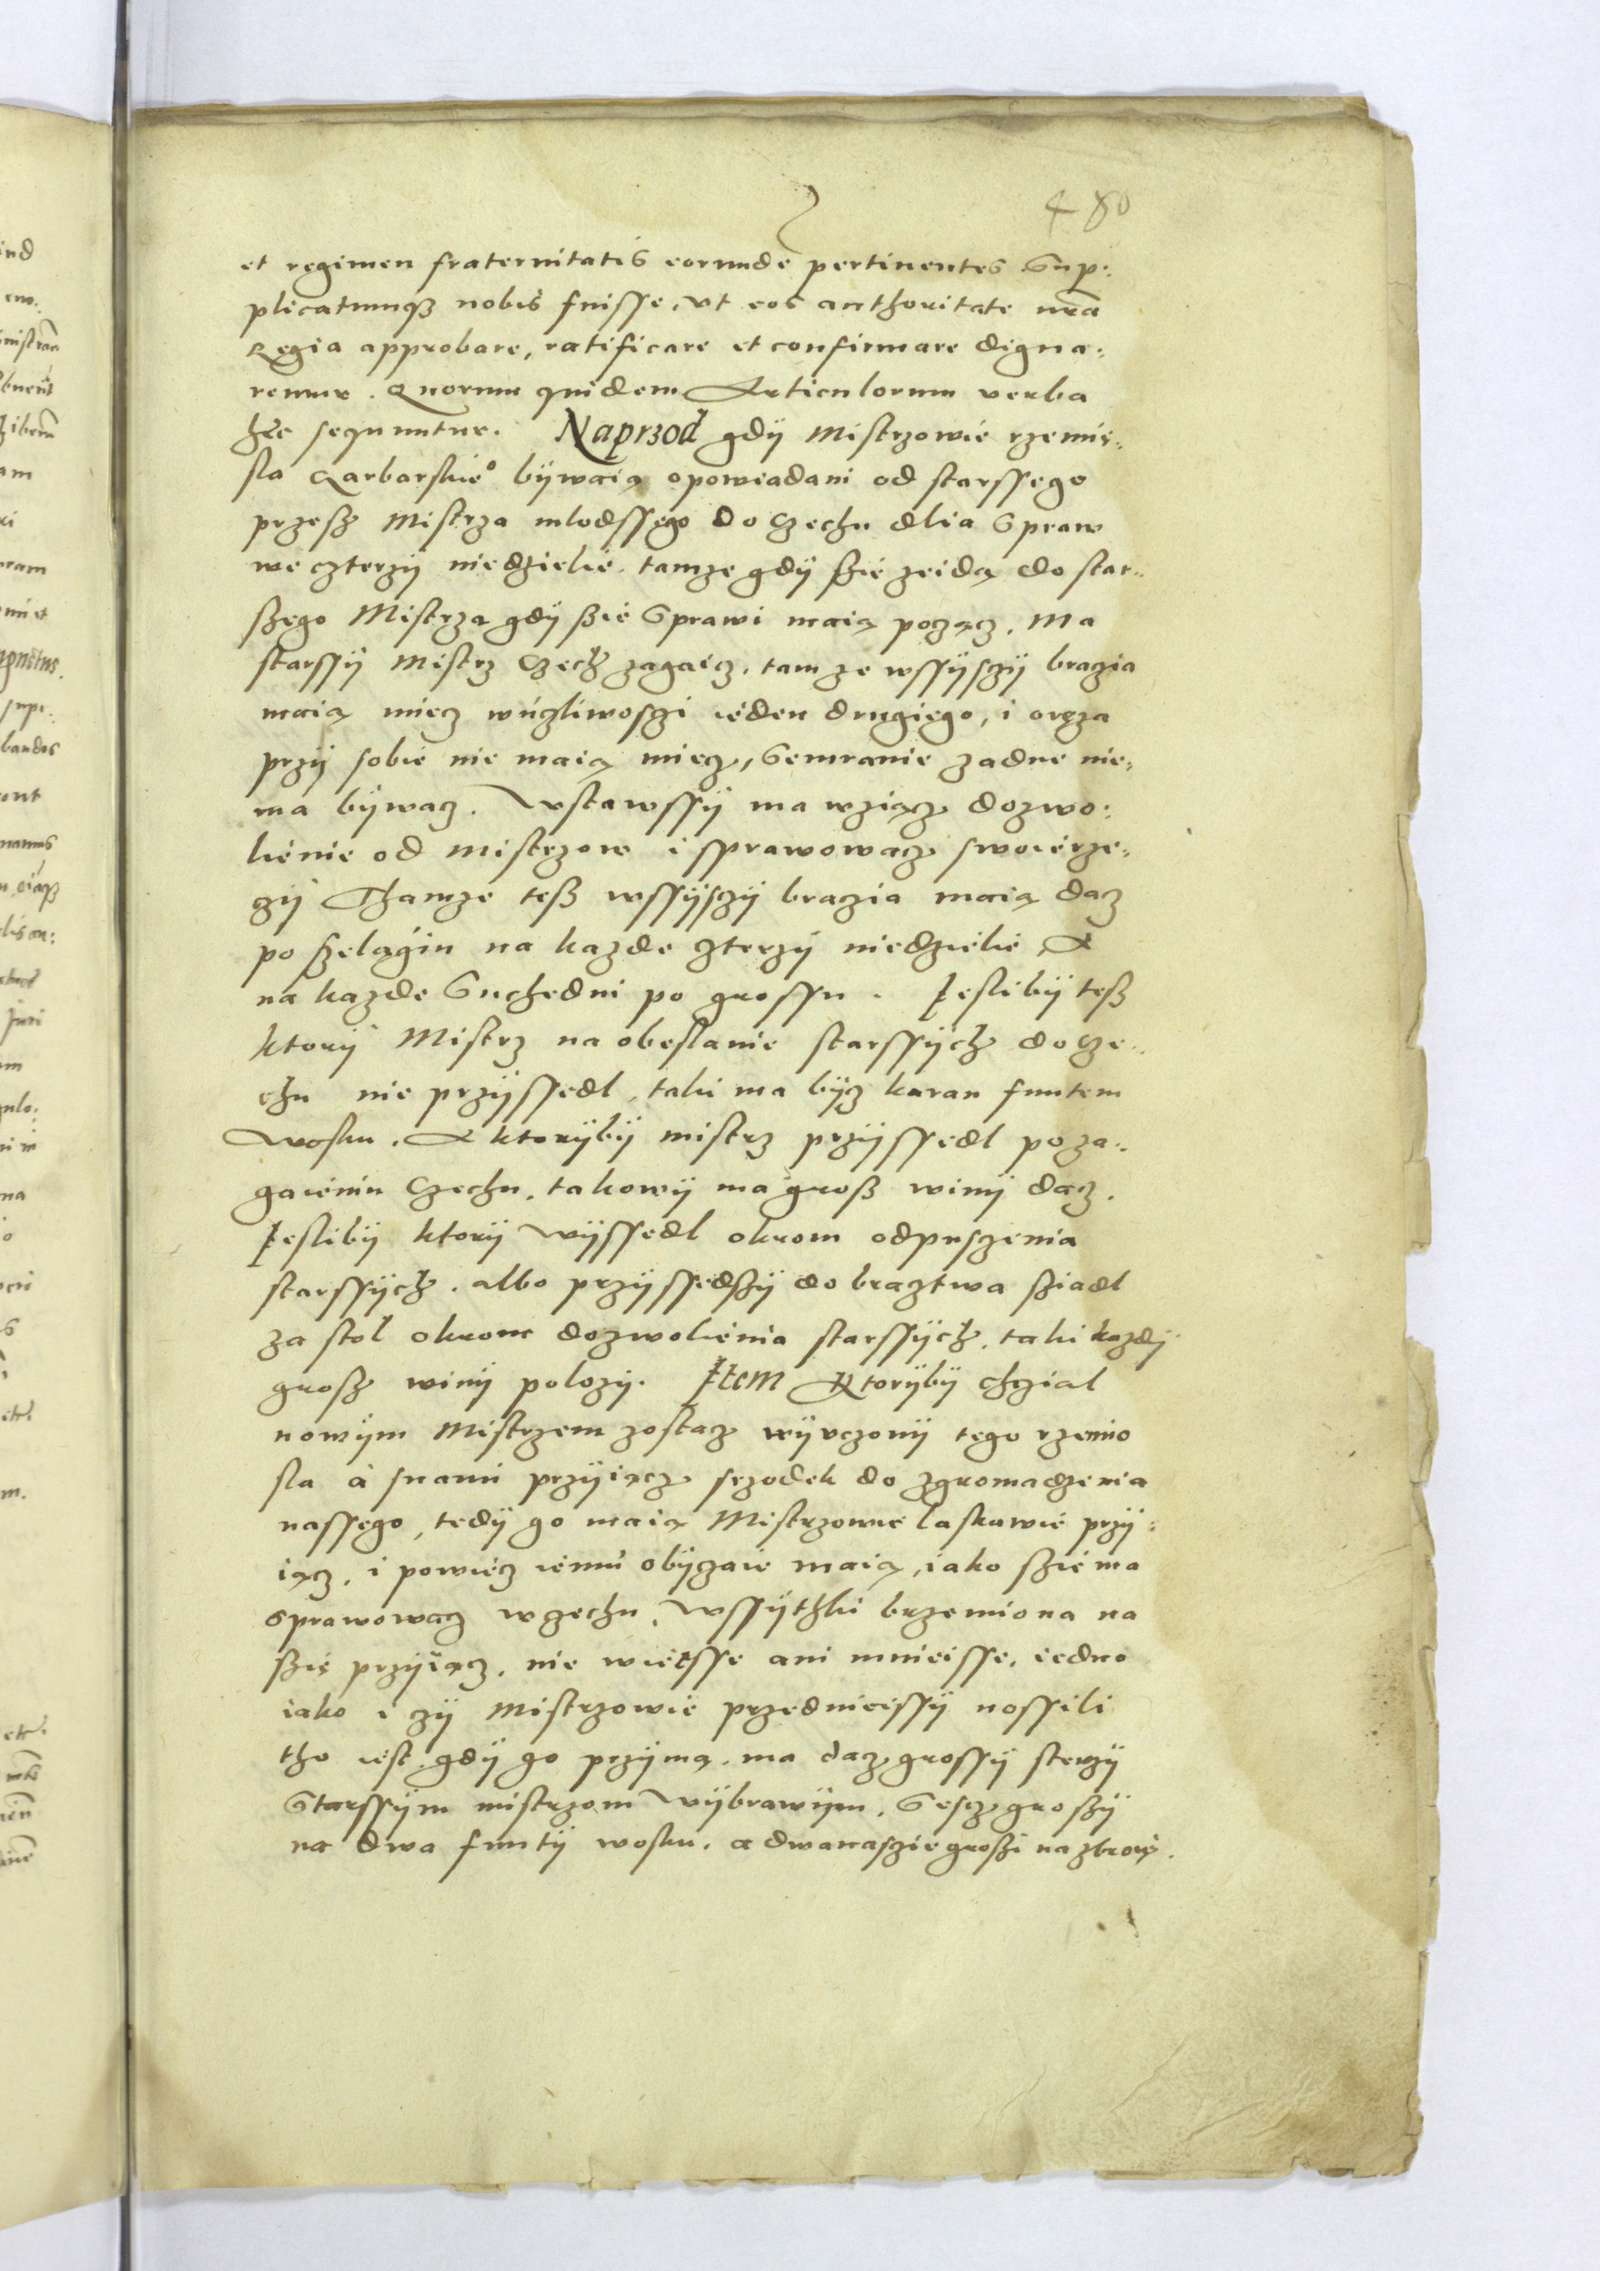 480
et regimen fraternitatis eorunde pertinentes Sup:
plicatumq3 nobis fuisse, vt eos authoritate nrā
Regia approbare, ratificare et confirmare digna:
remur. Quorum quidem Articulorum verba
hęc sequuntur. Naprzod gdÿ Mistrzowie rzemię:
sla Garbarskieº bÿwaią opowiadani od starssego
przesz Mistrza mlodssego do Czechu dlia Spraw
we czterzÿ niedzielie. tamze gdÿ szie zeidą do star:
szego Mistrza gdÿ szie Sprawi maią począcz. Ma
starssÿ Mistrz Czech zagaicz. tam ze wssÿsczÿ braczia
maią miecz wucżliwosczi ieden drugiego, i oręza
przÿ sobie nie maią miecz, Semranie zadne nie:
ma bÿwacz. Wstawssÿ ma wziącz dozwo:
lienie od Mistrzow i sprawowacz swoie rze:
czÿ Thamze tesz wssÿsczÿ braczia maią dacz
po szelągiu na kazde czterzÿ niedzielie A
na kazde Suchedni po grossu. Iesliby tesz
ktorÿ Mistrz na obeslanie starssÿch do Cze:
chu nie przÿssedl, taki ma bÿcz karan funtem
Wosku. A ktorÿbÿ mistrz przÿssedl po za:
gaieniu Czechu, takowÿ ma grosz winÿ dacz.
Ieslibÿ ktorÿ Wÿssedl okrom odpusczenia
starssÿch. albo przÿssedszÿ do bractwa sziadl
za stol okrom dozwolienia starssÿch. taki kazdÿ
grosz winÿ polozÿ. Item Ktorÿbÿ chczial
nowÿm Mistrzem zostacz wÿuczonÿ tego rzemio
sla a snami przÿiącz srzodek do zgromadzenia
nassego, tedÿ go maią Mistrzowie laskawie przÿ:
iącz, i powiecz iemu obÿczaie maią, iako szie ma
sprawowacz wczechu, Wssÿthki brzemiona na
szię przÿiącz. nie wietsse ani mnieisse. iedno
iako i czÿ Mistrzowie przednieissÿ nossili
tho iest gdÿ go przÿmą. ma dacz grossÿ sterzÿ
Starssÿm mistrzom Wÿbrawÿm. Sescz groszÿ
na dwa funtÿ wosku. a dwanasczie groszi na zbroię.